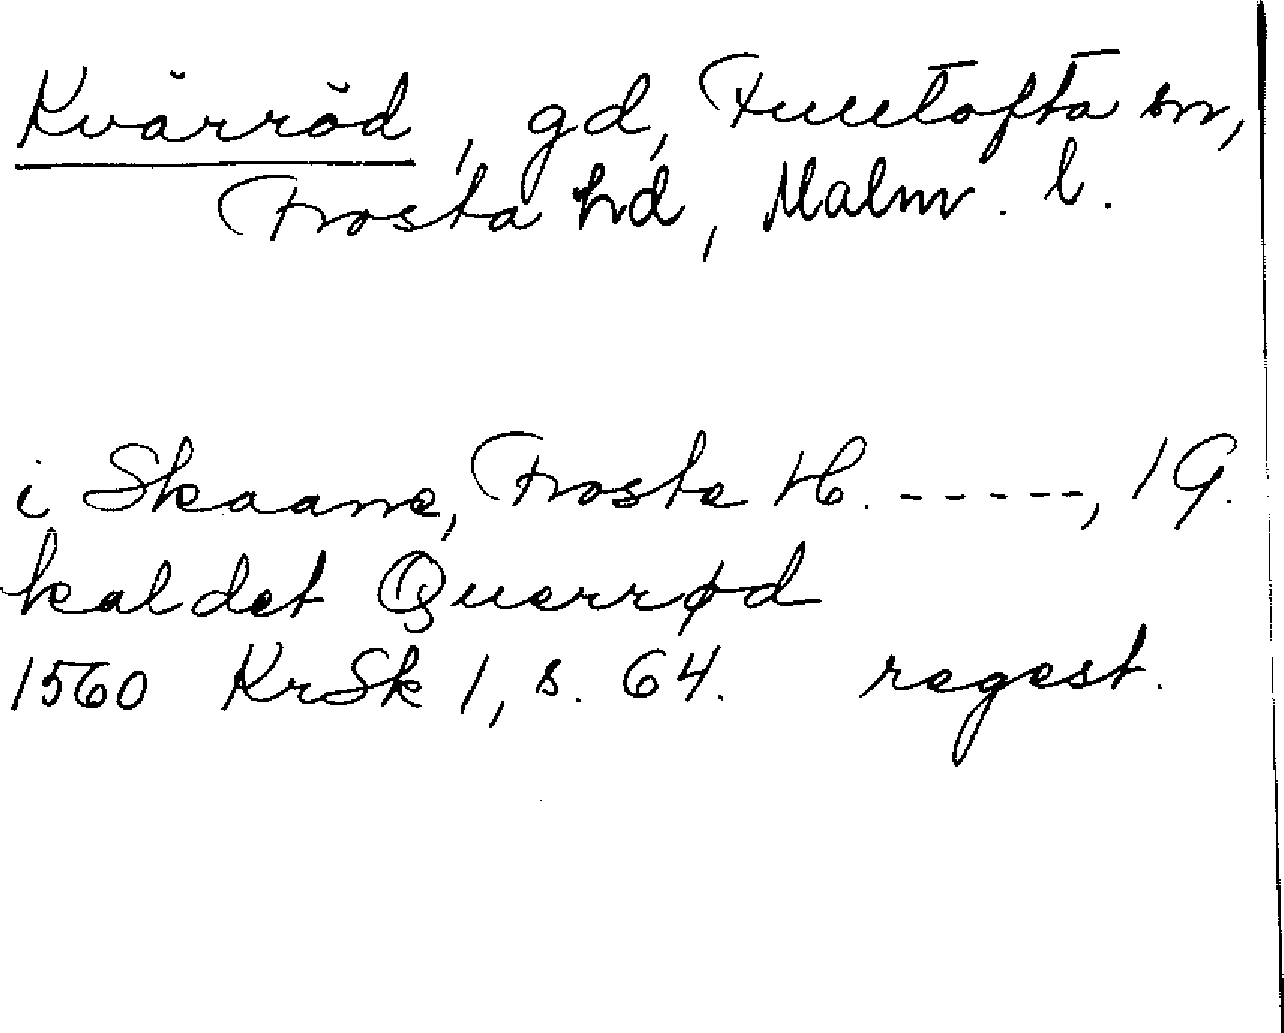 Kvärröd, gd, Fulltofta sn,
Frosta hd, Malm. l.
i Skaane, Froste H. -----, 1 G.
kaldet Querrød
1560 KrSk 1, s. 64. regest.